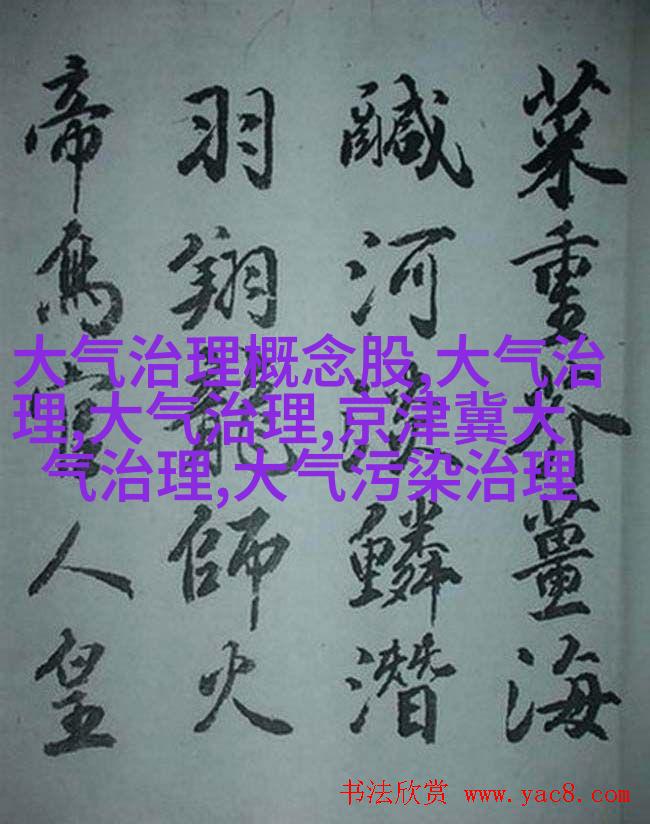 菜重芥薑海
鹹河淡鱗潛
羽翔龍師火
帝鳥官人皇
大气治理概念股,大气治
理,大气治理,京津冀大
气治理,大气污染治理
书法欣赏 www.yac8.com